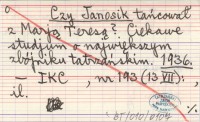 Czy Janosik tańcował
z Marją Teresą? Ciekawe
studjum o największym
zbójniku tatrzańskim. 1936.
— IKC, nr 193 (13 VII):
il.
BT/010/0104